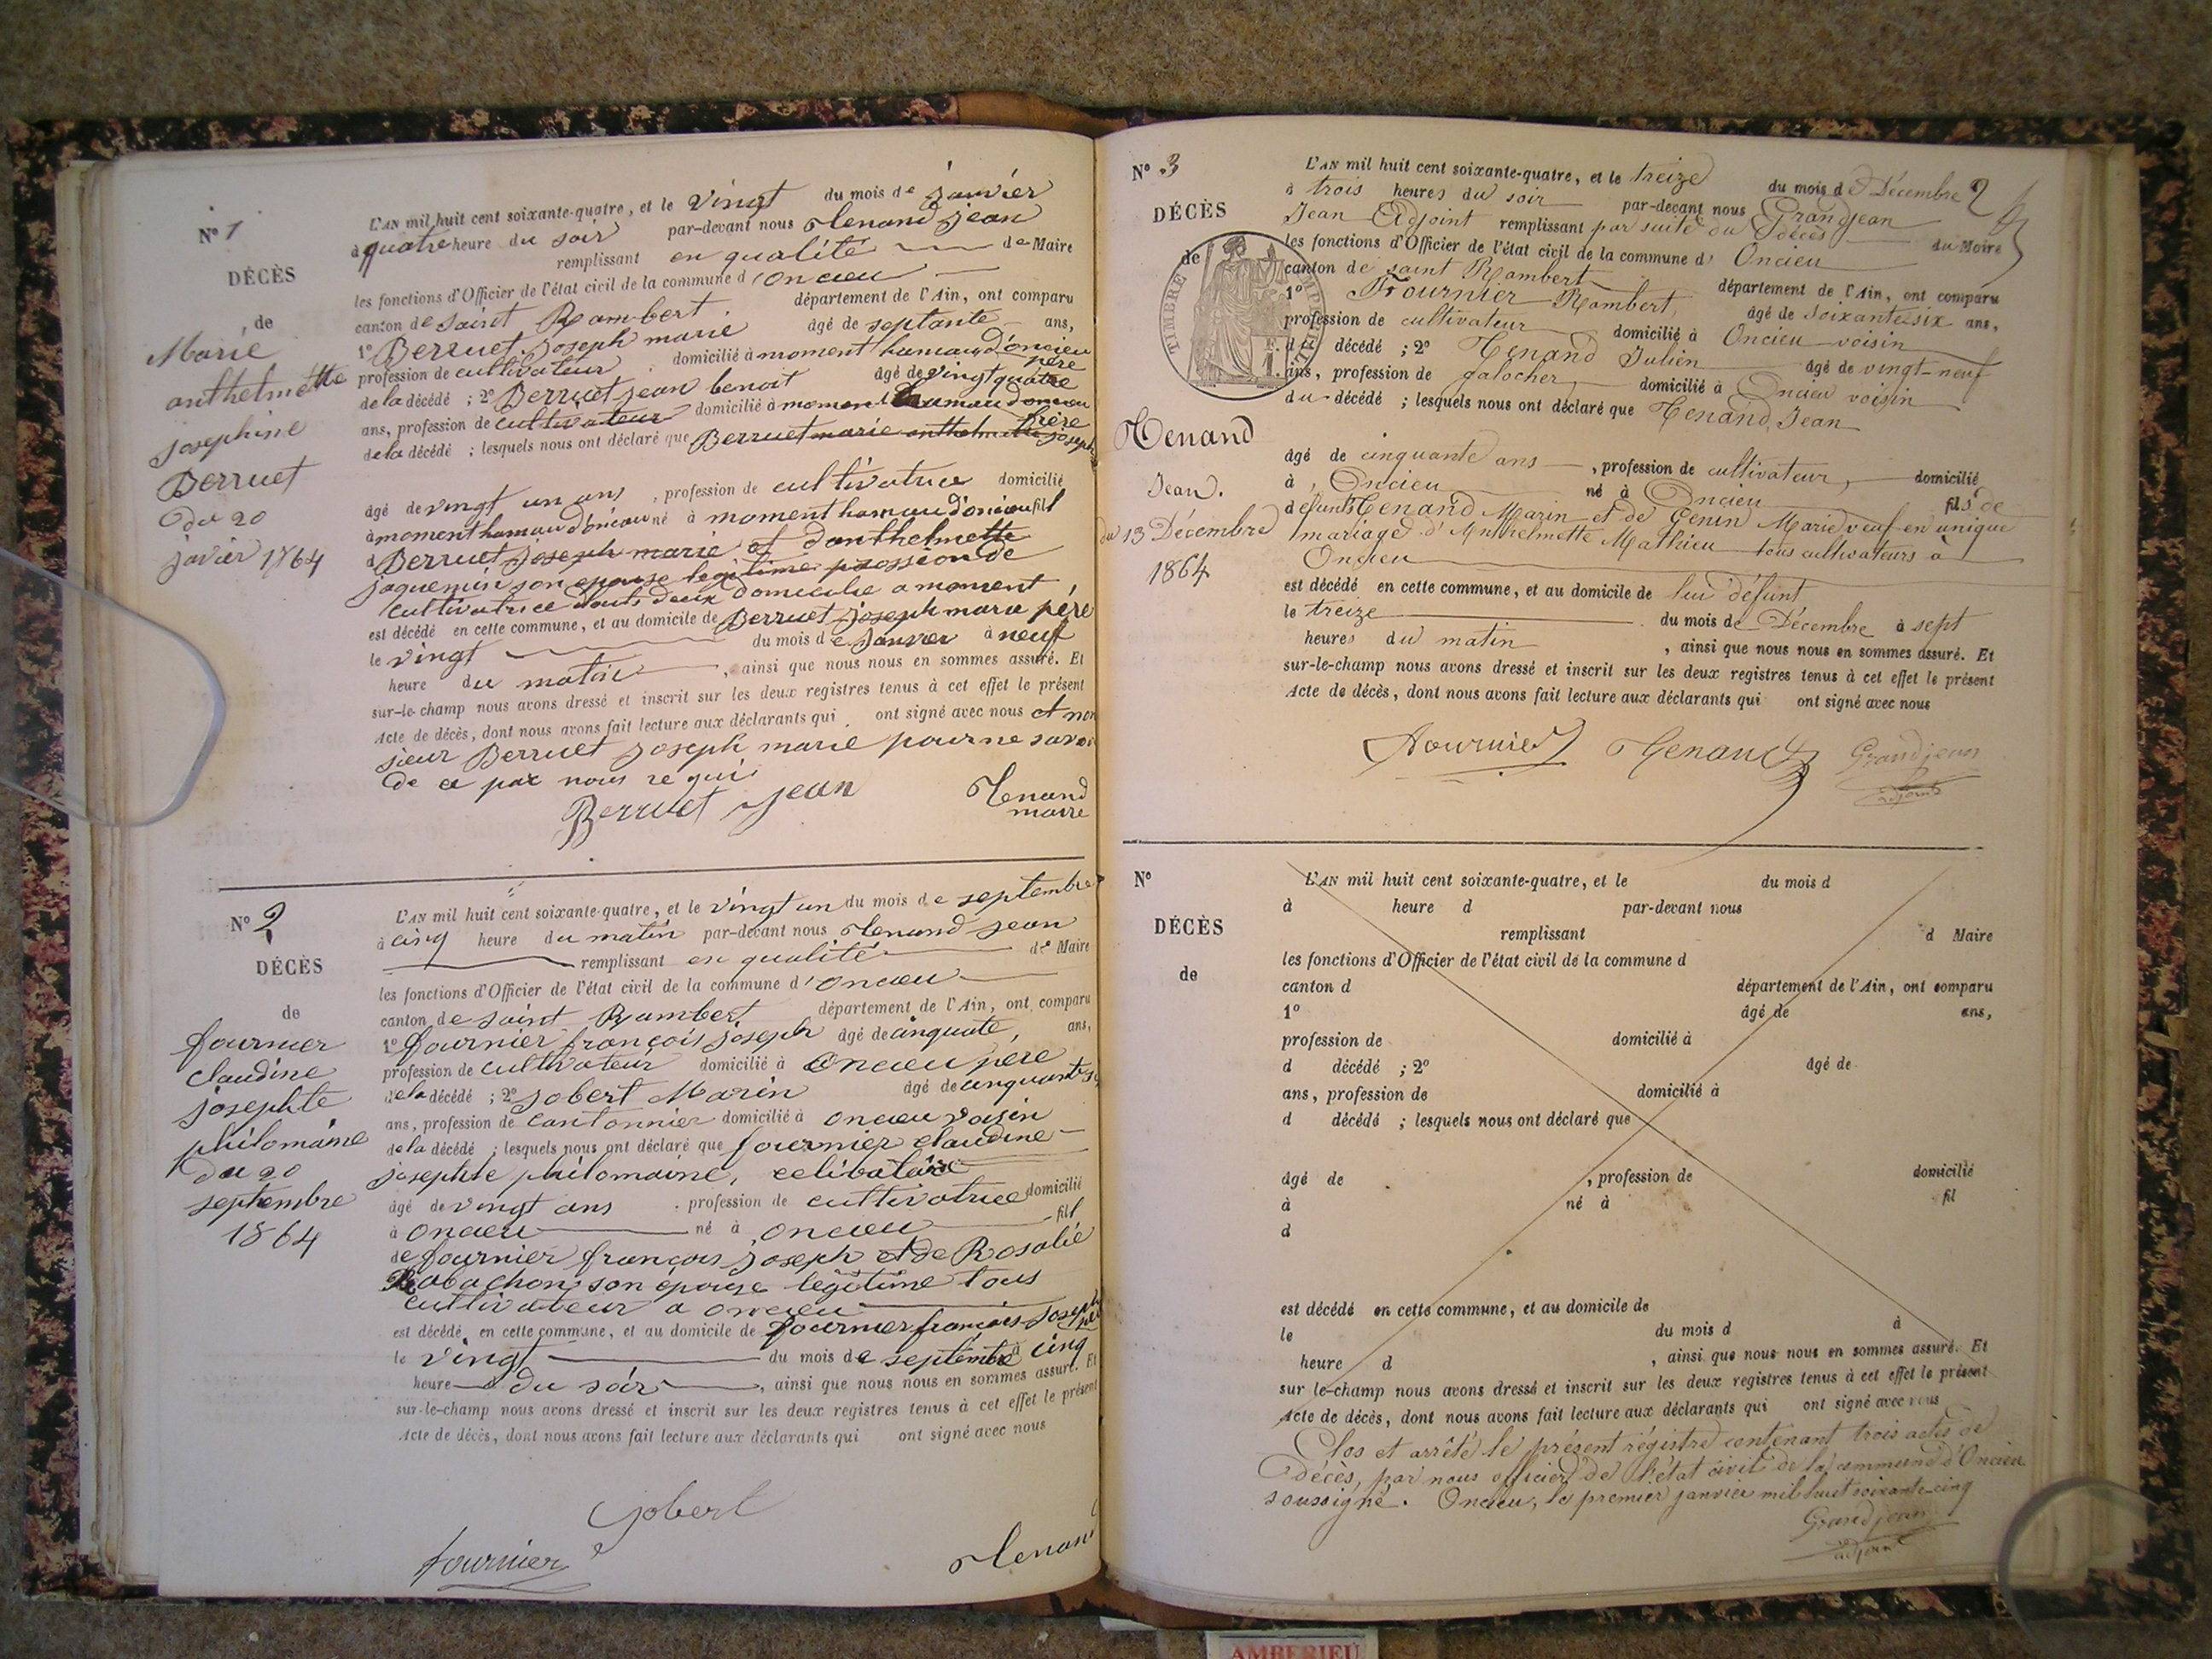 N° 1
DÉCÈS
de
Marie
anthelmette
josephine
Berruet
du 20
javier 1864
L'AN mil huit cent soixante-quatre, et le vingt du mois de janvier
à quatre heure du soir par-devant nous Tenand jean
remplissant en qualité de Maire
les fonctions d'Officier de l'état civil de la commune d'oncieu
canton de saint Rambert département de l'Ain, ont comparu
1° Berruet joseph marie âgé de septante ans,
profession de cultivateur domicilié à moment hamau d'oncieu père
de la décédé ; 2° Berruet jean benoit âgé de vingt quatre
ans, profession de cultivateur domicilié à moment hamau doncieu frère
de la décédé ; lesquels nous ont déclaré que Berruet marie anthelmette joseph
âgé de vingt un ans , profession de cultivatrice domicilié
à moment hamau d'oncieu né à moment hamau d'oncieu fill
d Berruet joseph marie et danthelmette
jaquemin son epouse legitime possion de
cultivatrice touts deux domicilie a moment
est décédé en cette commune, et au domicile de Berruet joseph marie père
le vingt du mois de janvier à neuf
heure du matin , ainsi que nous nous en sommes assuré. Et
sur-le-champ nous avons dressé et inscrit sur les deux registres tenus à cet effet le présent
Acte de décès, dont nous avons fait lecture aux déclarants qui ont signé avec nous et non
sieur Berruet joseph marie pour ne savoir
de ce par nous requi
Berruet jean Tenand
maire
N° 2
DÉCÈS
de
fournier
claudine
josephte
philomaine
du 20
septembre
1864
L'AN mil huit cent soixante-quatre, et le vingt un du mois de septembre
à cinq heure du matin par-devant nous Tenand jean
remplissant en qualité de Maire
les fonctions d'Officier de l'état civil de la commune d'oncieu
canton de saint Rambert département de l'Ain, ont comparu
1° fournier françois joseph âgé de cinquate ans,
profession de cultivateur domicilié à oncieu père
de la décédé ; 2° jobert Marin âgé de cinquante
ans, profession de Cantonnier domicilié à oncieu voisin
de la décédé ; lesquels nous ont déclaré que fournier claudine
josephte philomaine, celibataire
âgé de vingt ans , profession de cultivatrice domicilié
à oncieu né à oncieu fill
de fournier françois joseph et de Rosalie
son épouse legitime tous
cultivateur a oncieu
est décédé en cette commune, et au domicile de fournier françois joseph
le vingt du mois de septembre à cinq
heure du soir , ainsi que nous nous en sommes assuré. Et
sur-le-champ nous avons dressé et inscrit sur les deux registres tenus à cet effet le présent
Acte de décès, dont nous avons fait lecture aux déclarants qui ont signé avec nous
jobert
fournier Tenand
N° 3
DÉCÈS
de
TIMBRE IMPÉRIAL
Tenand
Jean.
du 13 Décembre
1864
L'AN mil huit cent soixante-quatre, et le treize du mois de Décembre 2
à trois heures du soir par-devant nous Grandjean
Jean Adjoint remplissant par suite du décès du Maire
les fonctions d'Officier de l'état civil de la commune d' Oncieu
canton de saint Rambert département de l'Ain, ont comparu
1° Fournier Rambert âgé de soixante six ans,
profession de cultivateur domicilié à Oncieu voisin
du décédé ; 2° Tenand Julien âgé de vingt-neuf
ans, profession de galocher domicilié à Oncieu voisin
du décédé ; lesquels nous ont déclaré que Tenand, Jean
âgé de cinquante ans , profession de cultivateur, domicilié
à Oncieu né à Oncieu fils de
défunts Tenand Marin et de Genin Marie veuf en unique
mariage d'Anthelmette Mathieu tous cultivateurs à
Oncieu
est décédé en cette commune, et au domicile de lui défunt
le treize du mois de Décembre à sept
heures du matin , ainsi que nous nous en sommes assuré. Et
sur-le-champ nous avons dressé et inscrit sur les deux registres tenus à cet effet le présent
Acte de décès, dont nous avons fait lecture aux déclarants qui ont signé avec nous
Fournier Tenand Grandjean
adjoint
N°
DÉCÈS
de
L'AN mil huit cent soixante-quatre, et le du mois d
à heure d par-devant nous
remplissant d Maire
les fonctions d'Officier de l'état civil de la commune d
canton d département de l'Ain, ont comparu
1° âgé de ans,
profession de domicilié à
d décédé ; 2° âgé de
ans, profession de domicilié à
d décédé ; lesquels nous ont déclaré que
âgé de , profession de domicilié
à né à fil
d
est décédé en cette commune, et au domicile de
le du mois d à
heure d , ainsi que nous nous en sommes assuré. Et
sur le-champ nous avons dressé et inscrit sur les deux registres tenus à cet effet le présent
Acte de décès, dont nous avons fait lecture aux déclarants qui ont signé avec nous
Clos et arrêté le présent régistre contenant trois actes de
décès, par nous officier de l'état civil de la commune d'Oncieu
soussigné. Oncieu, le premier janvier mil huit soixante-cinq
Grandjean
adjoint
AMBERIEU